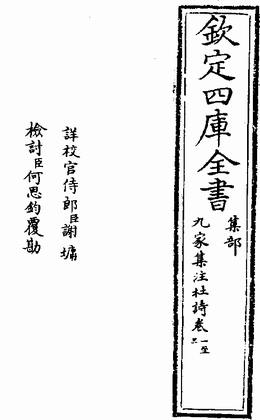 欽定四庫全書
集部
九家集注杜詩卷一至三
詳校官侍郎臣謝墉
檢討臣何思鈞覆勘